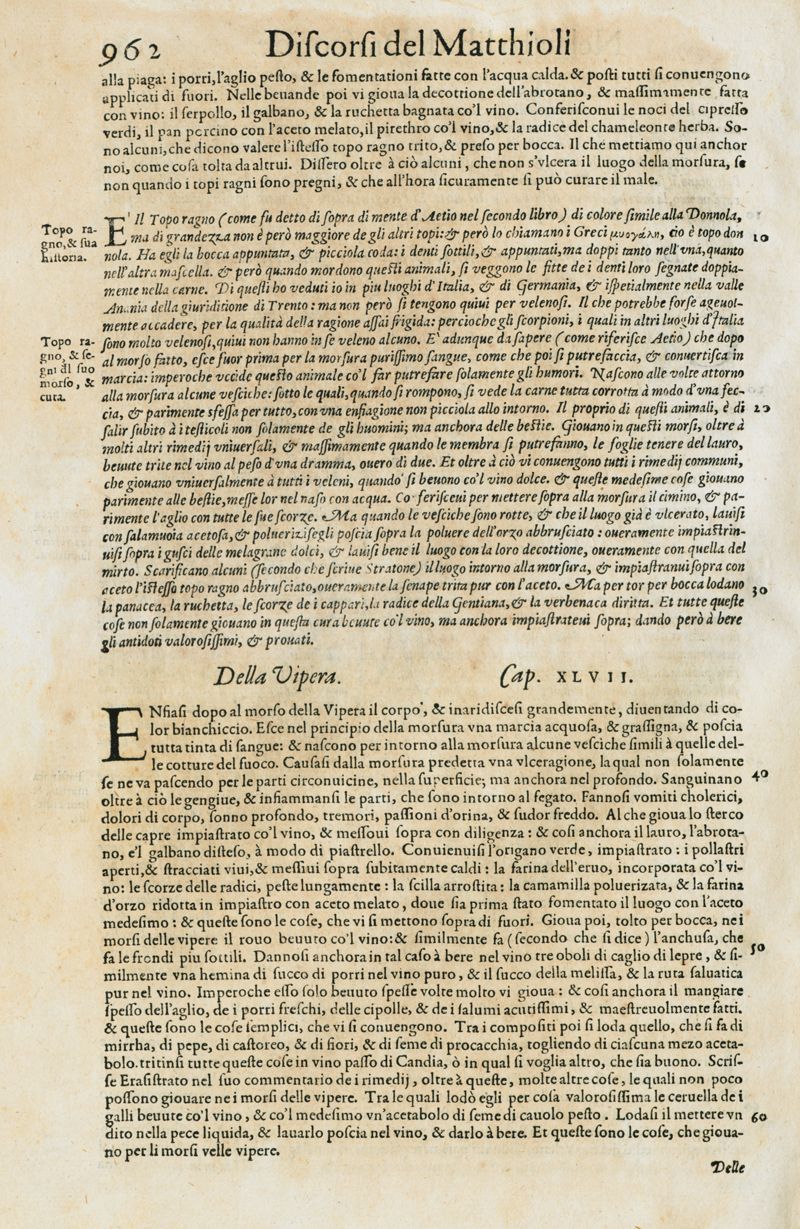 962 Diſcorſi del Matthioli
alla piaga: i porri, l'aglio peſto, & le fomentationi fatte con l'acqua calda. & poſti tutti ſi conuengono
applicati di fuori. Nelle beuande poi vi gioua la decottione dell'abrotano, & maſſimamente fatta
con vino: il ſerpollo, il galbano, & la ruchetta bagnata co'l vino. Conferiſconui le noci del cipreſſo
verdi, il pan porcino con l'aceto melato, il pirethro co'l vino, & la radice del chameleonte herba. So-
no alcuni, che dicono valere l'iſteſſo topo ragno trito, & preſo per bocca. Il che mettiamo qui anchor
noi, come coſa tolta da altrui. Diſſero oltre à ciò alcuni, che non s'vlcera il luogo della morſura, ſe
non quando i topi ragni ſono pregni, & che all'hora ſicuramente ſi può curare il male.
Topo ra-
gno, & ſua
hiſtoria.
E' Il Topo ragno (come fu detto di ſopra di mente d'Aetio nel ſecondo libro) di colore ſimile alla Donnola,
ma di grandezza non è però maggiore de gli altri topi: & però lo chiamano i Greci μυογάλη, ciò è topo don 10
nola. Ha egli la bocca appuntata, & picciola coda: i denti ſottili, & appuntati, ma doppi tanto nell'vna, quanto
nell'altra maſcella. & però quando mordono queſti animali, ſi veggono le fitte de i denti loro ſegnate doppia-
mente nella carne. Di queſti ho veduti io in piu luoghi d'Italia, & di Germania, & iſpetialmente nella valle
Anania della giuriditione di Trento: ma non però ſi tengono quiui per velenoſi. Il che potrebbe forſe ageuol-
mente accadere, per la qualità della ragione aſſai frigida: percioche gli ſcorpioni, i quali in altri luoghi d'Italia
Topo ra-
gno, & ſe-
gni di ſuo
morſo, &
cura.
ſono molto velenoſi, quiui non hanno in ſe veleno alcuno. E' adunque da ſapere (come riferiſce Aetio) che dopo
al morſo fatto, eſce fuor prima per la morſura puriſſimo ſangue, come che poi ſi putrefaccia, & conuertiſca in
marcia: imperoche vccide queſto animale co'l far putrefare ſolamente gli humori. Naſcono alle volte attorno
alla morſura alcune veſciche: ſotto le quali, quando ſi rompono, ſi vede la carne tutta corrotta à modo d'vna fec-
cia, & parimente ſfeſſa per tutto, con vna enfiagione non picciola allo intorno. Il proprio di queſti animali, è di 20
ſalir ſubito à i teſticoli non ſolamente de gli huomini; ma anchora delle beſtie. Giouano in queſti morſi, oltre à
molti altri rimedij vniuerſali, & maſſimamente quando le membra ſi putrefanno, le foglie tenere del lauro,
beuute trite nel vino al peſo d'vna dramma, ouero di due. Et oltre à ciò vi conuengono tutti i rimedij communi,
che giouano vniuerſalmente à tutti i veleni, quando ſi beuono co'l vino dolce. & queſte medeſime coſe giouano
parimente alle beſtie, meſſe lor nel naſo con acqua. Conferiſceui per mettere ſopra alla morſura il cimino, & pa-
rimente l'aglio con tutte le ſue ſcorze. Ma quando le veſciche ſono rotte, & che il luogo già è vlcerato, lauiſi
con ſalamuoia acetoſa, & poluerizſegli poſcia ſopra la poluere dell'orzo abbruſciato: oueramente impiaſtrin-
uiſi ſopra i guſci delle melagrane dolci, & lauiſi bene il luogo con la loro decottione, oueramente con quella del
mirto. Scarificano alcuni (ſecondo che ſcriue Stratone) il luogo intorno alla morſura, & impiaſtranui ſopra con
aceto l'iſteſſo topo ragno abbruſciato, oueramente la ſenape trita pur con l'aceto. Ma per tor per bocca lodano 30
la panacea, la ruchetta, le ſcorze de i cappari, la radice della Gentiana, & la verbenaca diritta. Et tutte queſte
coſe non ſolamente giouano in queſta cura beuute co'l vino, ma anchora impiaſtrateui ſopra; dando però à bere
gli antidoti valoroſiſſimi, & prouati.
Della Vipera. Cap. XLVII.
ENfiaſi dopo al morſo della Vipera il corpo, & inaridiſceſi grandemente, diuentando di co-
lor bianchiccio. Eſce nel principio della morſura vna marcia acquoſa, & graſſigna, & poſcia
tutta tinta di ſangue: & naſcono per intorno alla morſura alcune veſciche ſimili à quelle del-
le cotture del fuoco. Cauſaſi dalla morſura predetta vna vlceragione, la qual non ſolamente
ſe ne va paſcendo per le parti circonuicine, nella ſuperficie; ma anchora nel profondo. Sanguinano 40
oltre à ciò le gengiue, & infiammanſi le parti, che ſono intorno al fegato. Fannoſi vomiti cholerici,
dolori di corpo, ſonno profondo, tremori, paſſioni d'orina, & ſudor freddo. Al che gioua lo ſterco
delle capre impiaſtrato co'l vino, & meſſoui ſopra con diligenza: & coſi anchora il lauro, l'abrota-
no, e'l galbano diſteſo, à modo di piaſtrello. Conuienuiſi l'origano verde, impiaſtrato: i pollaſtri
aperti, & ſtracciati viui, & meſſiui ſopra ſubitamente caldi: la farina dell'eruo, incorporata co'l vi-
no: le ſcorze delle radici, peſte lungamente: la ſcilla arroſtita: la camamilla poluerizata, & la farina
d'orzo ridotta in impiaſtro con aceto melato, doue ſia prima ſtato fomentato il luogo con l'aceto
medeſimo: & queſte ſono le coſe, che vi ſi mettono ſopra di fuori. Gioua poi, tolto per bocca, ne i
morſi delle vipere il rouo beuuto co'l vino: & ſimilmente fa (ſecondo che ſi dice) l'anchuſa, che
fa le frondi piu ſottili. Dannoſi anchora in tal caſo à bere nel vino tre oboli di caglio di lepre, & ſi- 50
milmente vna hemina di ſucco di porri nel vino puro, & il ſucco della meliſſa, & la ruta ſaluatica
pur nel vino. Imperoche eſſo ſolo beuuto ſpeſſe volte molto vi gioua: & coſi anchora il mangiare
ſpeſſo dell'aglio, de i porri freſchi, delle cipolle, & de i ſalumi acutiſſimi, & maeſtreuolmente fatti.
& queſte ſono le coſe ſemplici, che vi ſi conuengono. Tra i compoſiti poi ſi loda quello, che ſi fa di
mirrha, di pepe, di caſtoreo, & di fiori, & di ſeme di procacchia, togliendo di ciaſcuna mezo aceta-
bolo. tritinſi tutte queſte coſe in vino paſſo di Candia, ò in qual ſi voglia altro, che ſia buono. Scriſ-
ſe Eraſiſtrato nel ſuo commentario de i rimedij, oltre à queſte, molte altre coſe, le quali non poco
poſſono giouare ne i morſi delle vipere. Tra le quali lodò egli per coſa valoroſiſſima le ceruella de i
galli beuute co'l vino, & co'l medeſimo vn'acetabolo di ſeme di cauolo peſto. Lodaſi il mettere vn 60
dito nella pece liquida, & lauarlo poſcia nel vino, & darlo à bere. Et queſte ſono le coſe, che gioua-
no per li morſi velle vipere.
Delle